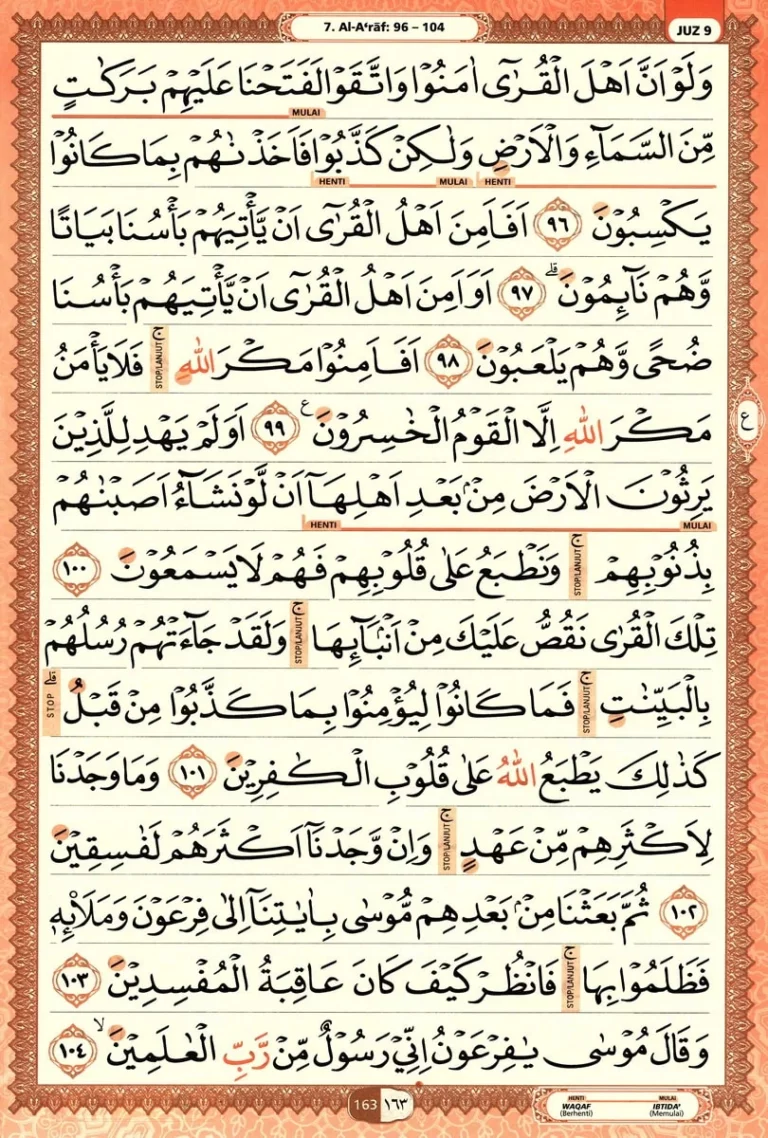 7. Al-A‘rāf: 96 – 104
JUZ 9
وَلَوْ اَنَّ اَهْلَ الْقُرٰٓى اٰمَنُوْا وَاتَّقَوْا لَفَتَحْنَا عَلَيْهِمْ بَرَكٰتٍ
MULAI
مِّنَ السَّمَاۤءِ وَالْاَرْضِ وَلٰكِنْ كَذَّبُوْا فَاَخَذْنٰهُمْ بِمَا كَانُوْا
HENTI MULAI HENTI
يَكْسِبُوْنَ ٩٦ اَفَاَمِنَ اَهْلُ الْقُرٰٓى اَنْ يَّأْتِيَهُمْ بَأْسُنَا بَيَاتًا
وَّهُمْ نَاۤىِٕمُوْنَۗ ٩٧ اَوَاَمِنَ اَهْلُ الْقُرٰٓى اَنْ يَّأْتِيَهُمْ بَأْسُنَا
ضُحًى وَّهُمْ يَلْعَبُوْنَ ٩٨ اَفَاَمِنُوْا مَكْرَ اللّٰهِۚ STOP/LANJUT فَلَا يَأْمَنُ
مَكْرَ اللّٰهِ اِلَّا الْقَوْمُ الْخٰسِرُوْنَ ع ٩٩ اَوَلَمْ يَهْدِ لِلَّذِيْنَ
ع
يَرِثُوْنَ الْاَرْضَ مِنْۢ بَعْدِ اَهْلِهَآ اَنْ لَّوْ نَشَاۤءُ اَصَبْنٰهُمْ
HENTI MULAI
بِذُنُوْبِهِمْۚ STOP/LANJUT وَنَطْبَعُ عَلٰى قُلُوْبِهِمْ فَهُمْ لَا يَسْمَعُوْنَ ١٠٠
تِلْكَ الْقُرٰى نَقُصُّ عَلَيْكَ مِنْ اَنْۢبَاۤىِٕهَاۚ STOP/LANJUT وَلَقَدْ جَاۤءَتْهُمْ رُسُلُهُمْ
بِالْبَيِّنٰتِۚ STOP/LANJUT فَمَا كَانُوْا لِيُؤْمِنُوْا بِمَا كَذَّبُوْا مِنْ قَبْلُۗ STOP
كَذٰلِكَ يَطْبَعُ اللّٰهُ عَلٰى قُلُوْبِ الْكٰفِرِيْنَ ١٠١ وَمَا وَجَدْنَا
لِاَكْثَرِهِمْ مِّنْ عَهْدٍۚ STOP/LANJUT وَاِنْ وَّجَدْنَآ اَكْثَرَهُمْ لَفٰسِقِيْنَ
١٠٢ ثُمَّ بَعَثْنَا مِنْۢ بَعْدِهِمْ مُّوْسٰى بِاٰيٰتِنَآ اِلٰى فِرْعَوْنَ وَمَلَا۟ىِٕهٖ
فَظَلَمُوْا بِهَاۚ STOP/LANJUT فَانْظُرْ كَيْفَ كَانَ عَاقِبَةُ الْمُفْسِدِيْنَ ١٠٣
وَقَالَ مُوْسٰى يٰفِرْعَوْنُ اِنِّيْ رَسُوْلٌ مِّنْ رَّبِّ الْعٰلَمِيْنَۙ ١٠٤
163 ١٦٣
HENTI MULAI
WAQAF IBTIDA'
(Berhenti) (Memulai)